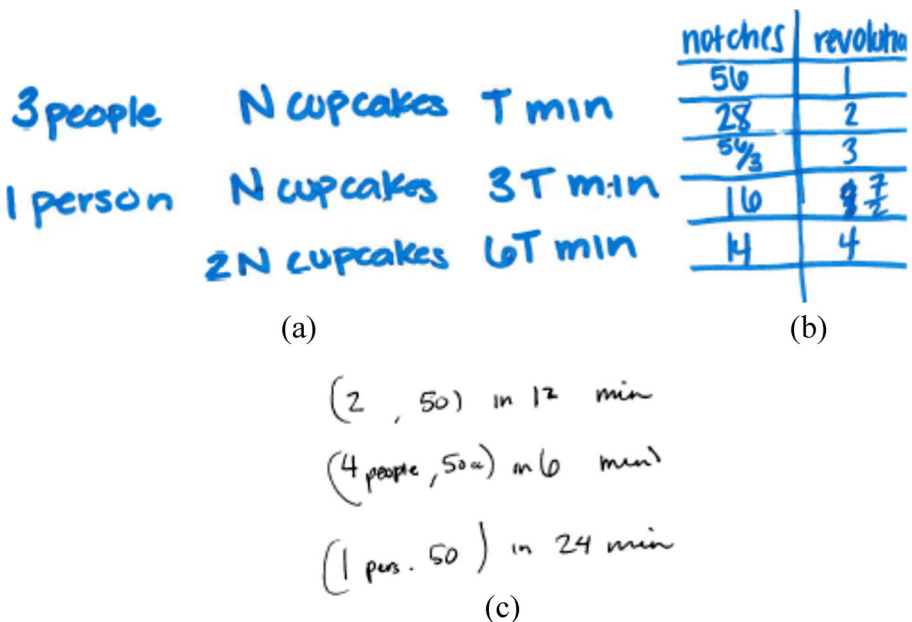 3 people N cupcakes T min
1 person N cupcakes 3T min
2N cupcakes 6T min
(a)
notches revolutio
56 1
28 2
56/3 3
16 7/2
14 4
(b)
(2 , 50) in 12 min
(4 people, 50 ) in 6 min
(1 pers. 50 ) in 24 min
(c)